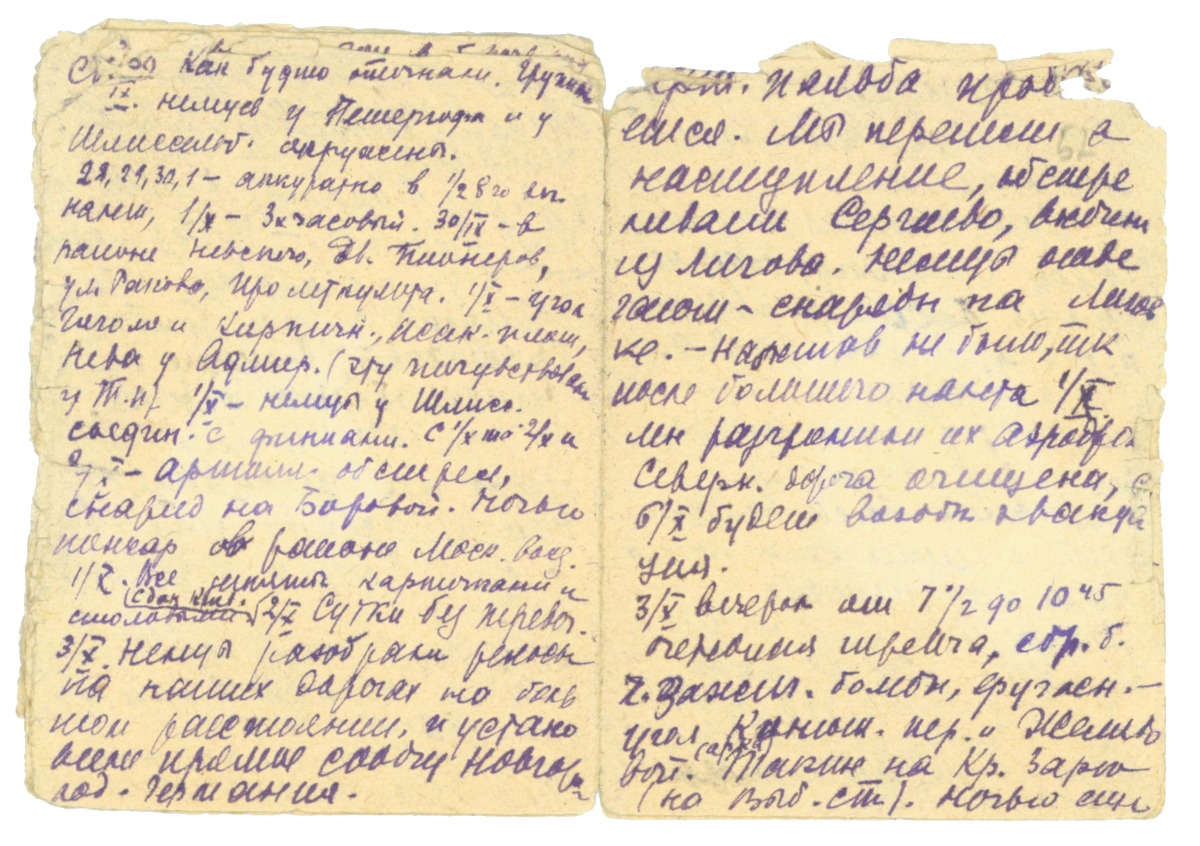 Как будто отогнали. Группы
IX. немцев у Петергофа и у
Шлиссельб. окружены.
28, 29, 30, 1 – аккуратно в 1/2 8го
налет, 1/X – 3х часовый. 30/IX – в
районе Невского, Дв. Пионеров,
ул. Ракова, Пролеткульта. 1/X – угол
Гоголя и Кирпичн., Исак. площ,
Нева у Адмир. (эту почувствовали
у Т.И.) 1/X – немцы у Шлисс.
соедин. с финнами. С 1/X на 2/X и
2/X – артилл. обстрел,
снаряд на Боровой. Ночью
пожар в районе Моск. вокз.
1/X. Все заняты карточками и
(сдан Киев.)
столовыми 2/X Сутки без перевоз.
3/X. Немцы разобрали рельсы
на наших дорогах на боль
шом расстоянии, и устано
вили прямое сообщ Новгор
од. Германия.
арт. пальба
ется. Мы перешли а
наступление, обстре
ливаем Сергиево,
из Лигова. Немцы отве
гают – снаряды на Лигов
ке. – Налетов не было, тк
после большого налета 1/X
мы разгромили их аэродром
Северн. дорога очищена, с
6/X будет возобн эвакуа
ция.
3/X вечером от 7 1/2 до 10 45
очередная тревога, сбр. б.
ч. зажиг. бомбы, фугасн. –
угол Конюш. пер. и Желябо
(арка)
вой. Также на Кр. Зарю
(на Выб. ст.). Ночью